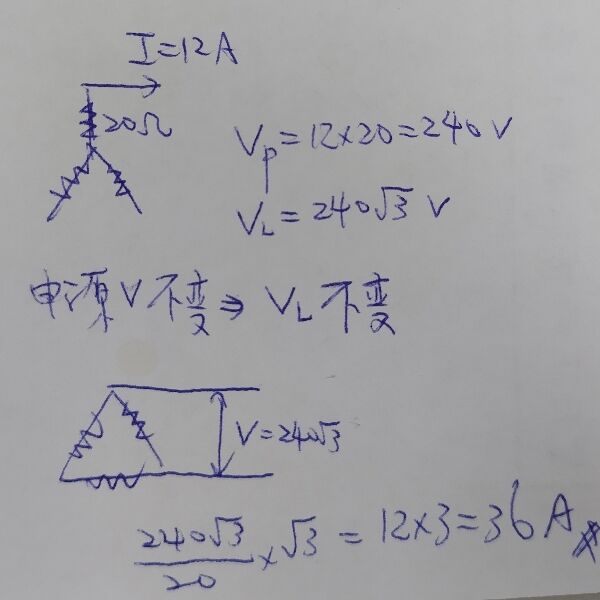 I=12A
20Ω
Vp=12×20=240V
VL=240√3 V
电源V不变⇒VL不变
V=240√3
240√3/20×√3=12×3=36A